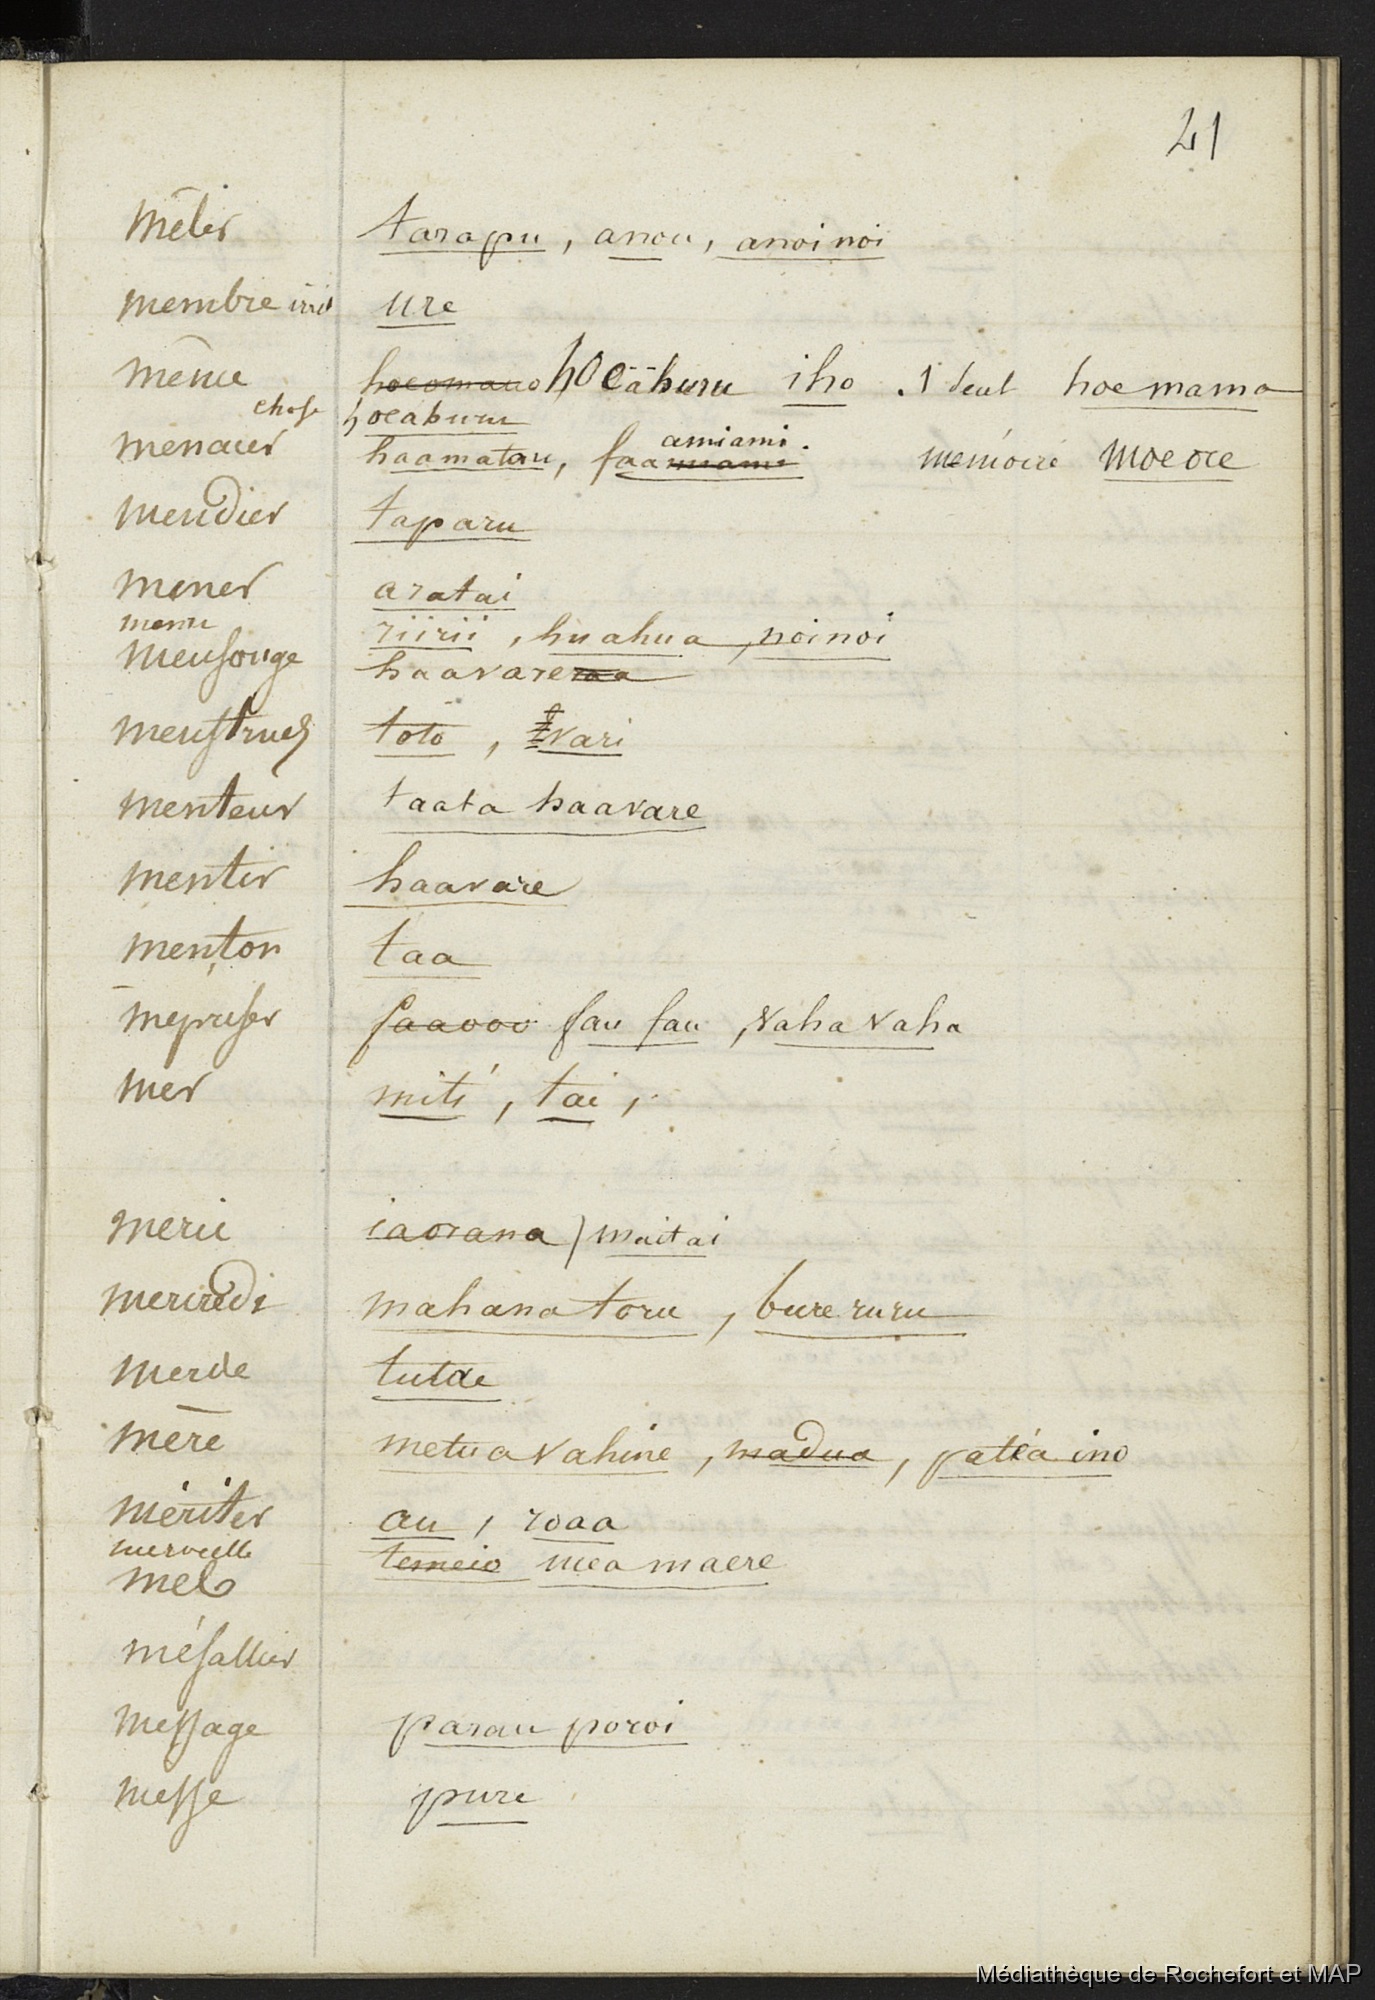 21
mêler tarapu, anou, anoinoi
membre viril ure
même hoeomauo hoeāhuru iho . 1 seul hoe mama
chose hoeahuru
amiami.
menacer haamatau, faamiami mémoire moe ore
mendier taparu
mener aratai
menu riirii, huahua, noinoi
mensonge haavareraa
menstrues toto, vari
menteur taata haavare
mentir haavare
menton taa
mépriser faaooo faufau, vahavaha
mer miti, tai,
merci iaorana) maitai
mercredi mahana toru, bureruru
merde tutae
mère metua vahine, madua, patéa ino
mériter au, roaa
merveille temeio mea maere
mes
mésallier
message parau poroi
messe pure
Médiathèque de Rochefort et MAP